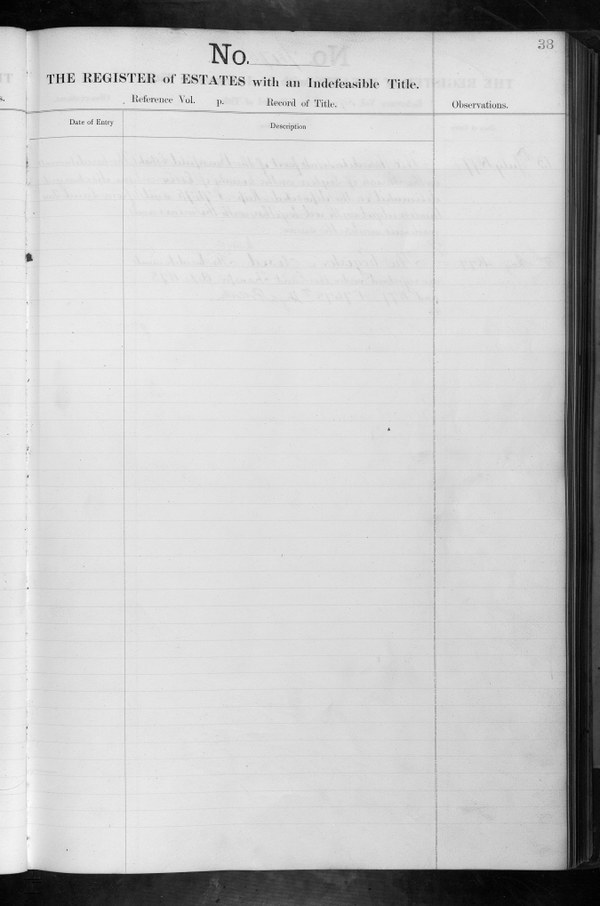 38
No.
THE REGISTER of ESTATES with an Indefeasible Title.
Reference Vol. p. Record of Title.
Observations.
Date of Entry
Description